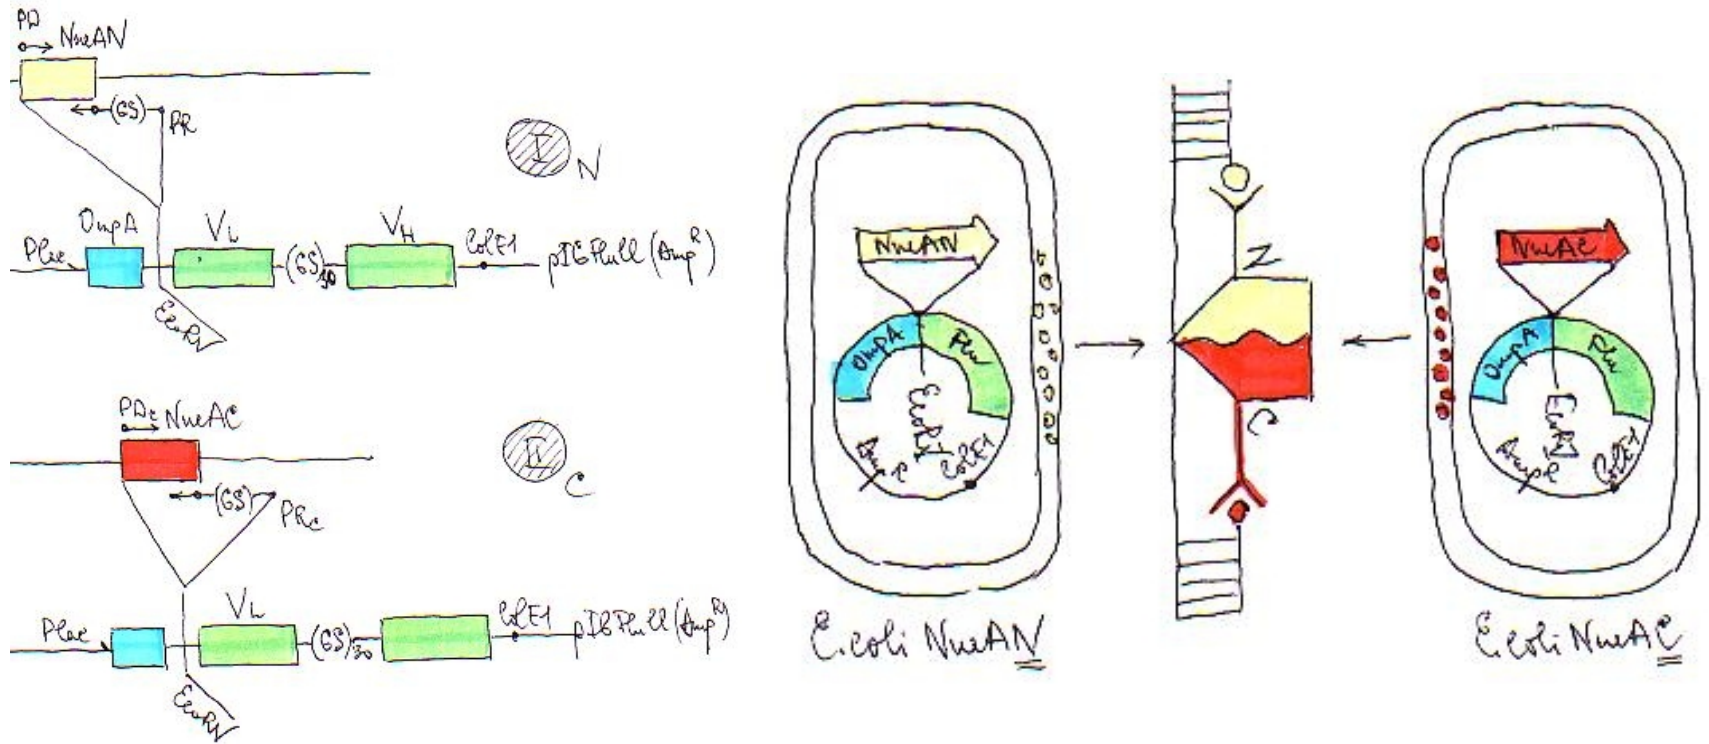 PD
NucAN
(GS)
PR
I
N
OmpA
VL
VH
Plac
(GS)30
ColE1
pIGFluII (AmpR)
EcoRV
PDc
NucAC
(GS)
PRc
II
C
VL
Plac
(GS)30
ColE1
pIGFluII (AmpR)
EcoRV
NucAN
OmpA
Flu
EcoRV
AmpR
ColE1
E.coli NucAN
N
C
NucAC
OmpA
Flu
EcoRV
AmpR
ColE1
E.coli NucAC